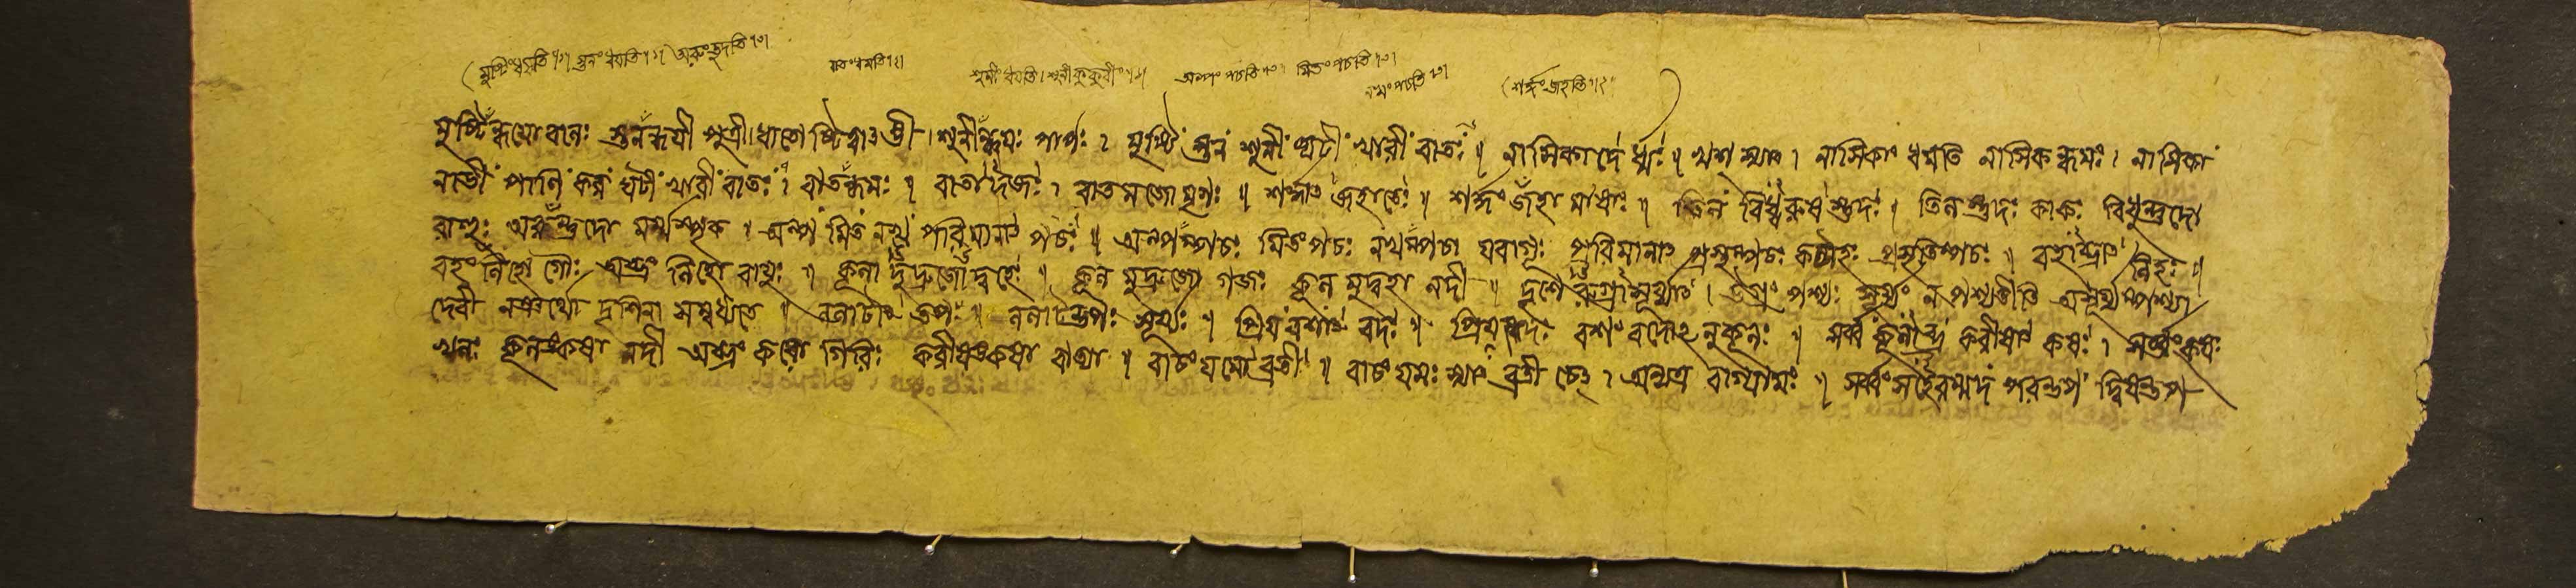 মুষ্টিং ধয়তি ।১। স্তনং ধয়তি ।১। অরুং তুদতি ।১। বাতং ধমতি ।২। শুনীং ধয়তি । শুনী কুকুরীং ।১। অল্পং পচতি ।১। মিতং পচতি ।১। শর্দ্ধং জহতি ।২।
নখং পচতি ।১।
মুষ্টিন্ধয়ো বালঃ স্তনন্ধয়ী পুত্রী। শুনীন্ধয়ঃ । মুষ্টিং স্তনং শুনীং ঘটীং খারীং বাতং ॥ নাসিকাদে র্ধ্মঃ ॥ খশ্ স্যাৎ । নাসিকাং ধমতি নাসিকন্ধমঃ । নাসিকাং
নাড়ীং পাণিং করং ঘটীং খারীং বাতং । বাতন্ধমঃ ॥ বাতাদজঃ । বাতমজো মৃগঃ ॥ শর্দ্ধাৎ জহাতেঃ ॥ শর্দ্ধং জহা মাষাঃ ॥ তিলং বিধ্বরুষস্তুদঃ । তিলন্তুদঃ কাকঃ বিধুন্তুদো
রাহুঃ অরুন্তুদো মর্ম্মস্পৃক ॥ অল্পং মিতং নখং পরিমাণাৎ পচঃ ॥ অল্পম্পচঃ মিতংপচঃ নখম্পচা যবাগূঃ পরিমাণাৎ প্রস্থম্পচঃ কটাহঃ প্রসৃতিম্পচঃ ॥ বহাভ্রাৎ লিহঃ ॥
বহংলিহো গৌঃ অভ্রংলিহো বায়ুঃ ॥ কূলা দুদ্রুজোদ্বহোঃ ॥ কূল মুদ্রুজো গজঃ কূল মুদ্বহা নদী ॥ দৃশে রুগ্রাসূর্য্যাৎ । উগ্রং পশ্যঃ সূর্য্যং ন পশ্যতীতি অসূর্য্যম্পশ্যা
দেবী নঞর্থো দৃশিনা সম্বধ্যতে ॥ ললাটাৎ তপঃ ॥ ললাটন্তপঃ সূর্য্যঃ ॥ প্রিয়বশাৎ বদঃ ॥ প্রিয়ম্বদঃ বশংবদোঽনুকূলঃ ॥ সর্ব্বকূলাভ্র করীষাৎ কষঃ । সর্ব্বংকষঃ
খলঃ কূলংকষা নদী অভ্রংকষো গিরিঃ করীষংকষা বাত্যা ॥ বাচংযমো ব্রতী ॥ বাচংযমঃ স্যাৎ ব্রতী চেৎ । অন্যত্র বাগ্যামঃ ॥ সর্ব্বংসহেরম্মদ পরন্তপ দ্বিষন্তপ